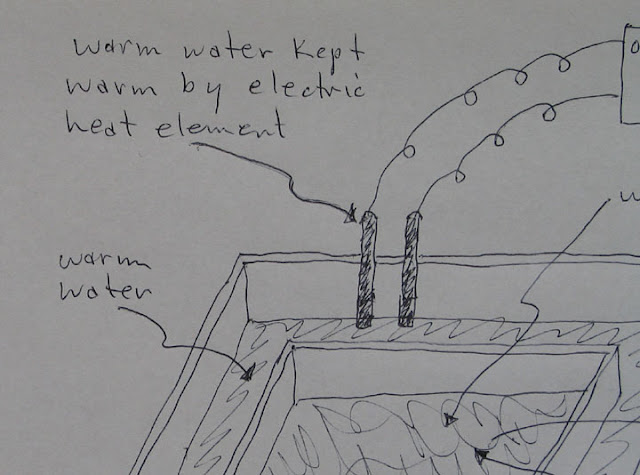 warm water kept
warm by electric
heat element
warm
water